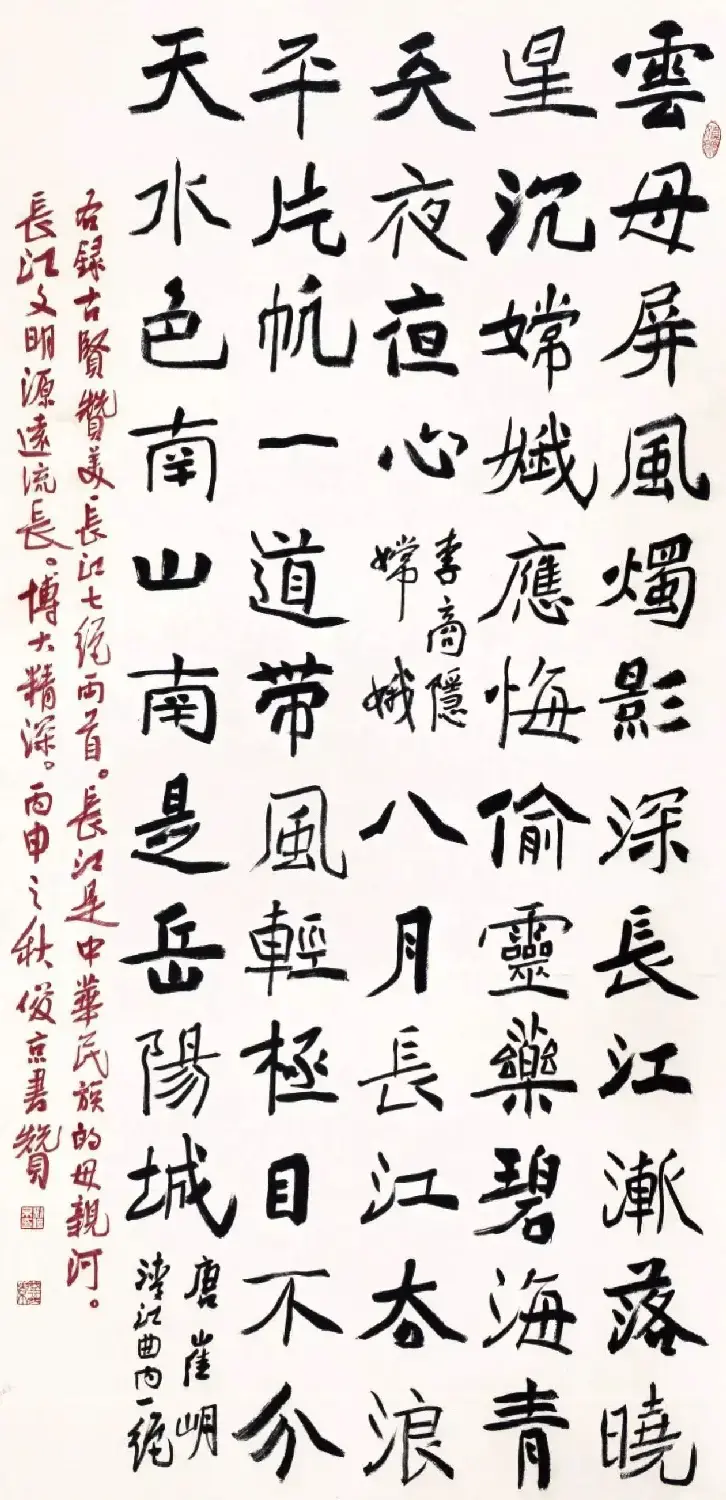 雲母屏風燭影深長江漸落曉
星沉嫦孅應悔偷靈藥碧海青
天夜夜心
李商隱
嫦娥
八月長江去浪
平片帆一道带風輕極目不分
天水色南山南是岳陽城
唐崔峒
清江曲内一絕
右録古賢贊美長江七絕兩首。長江是中華民族的母親河。
長江文明源遠流長。博大精深。丙申之秋俊京書贊